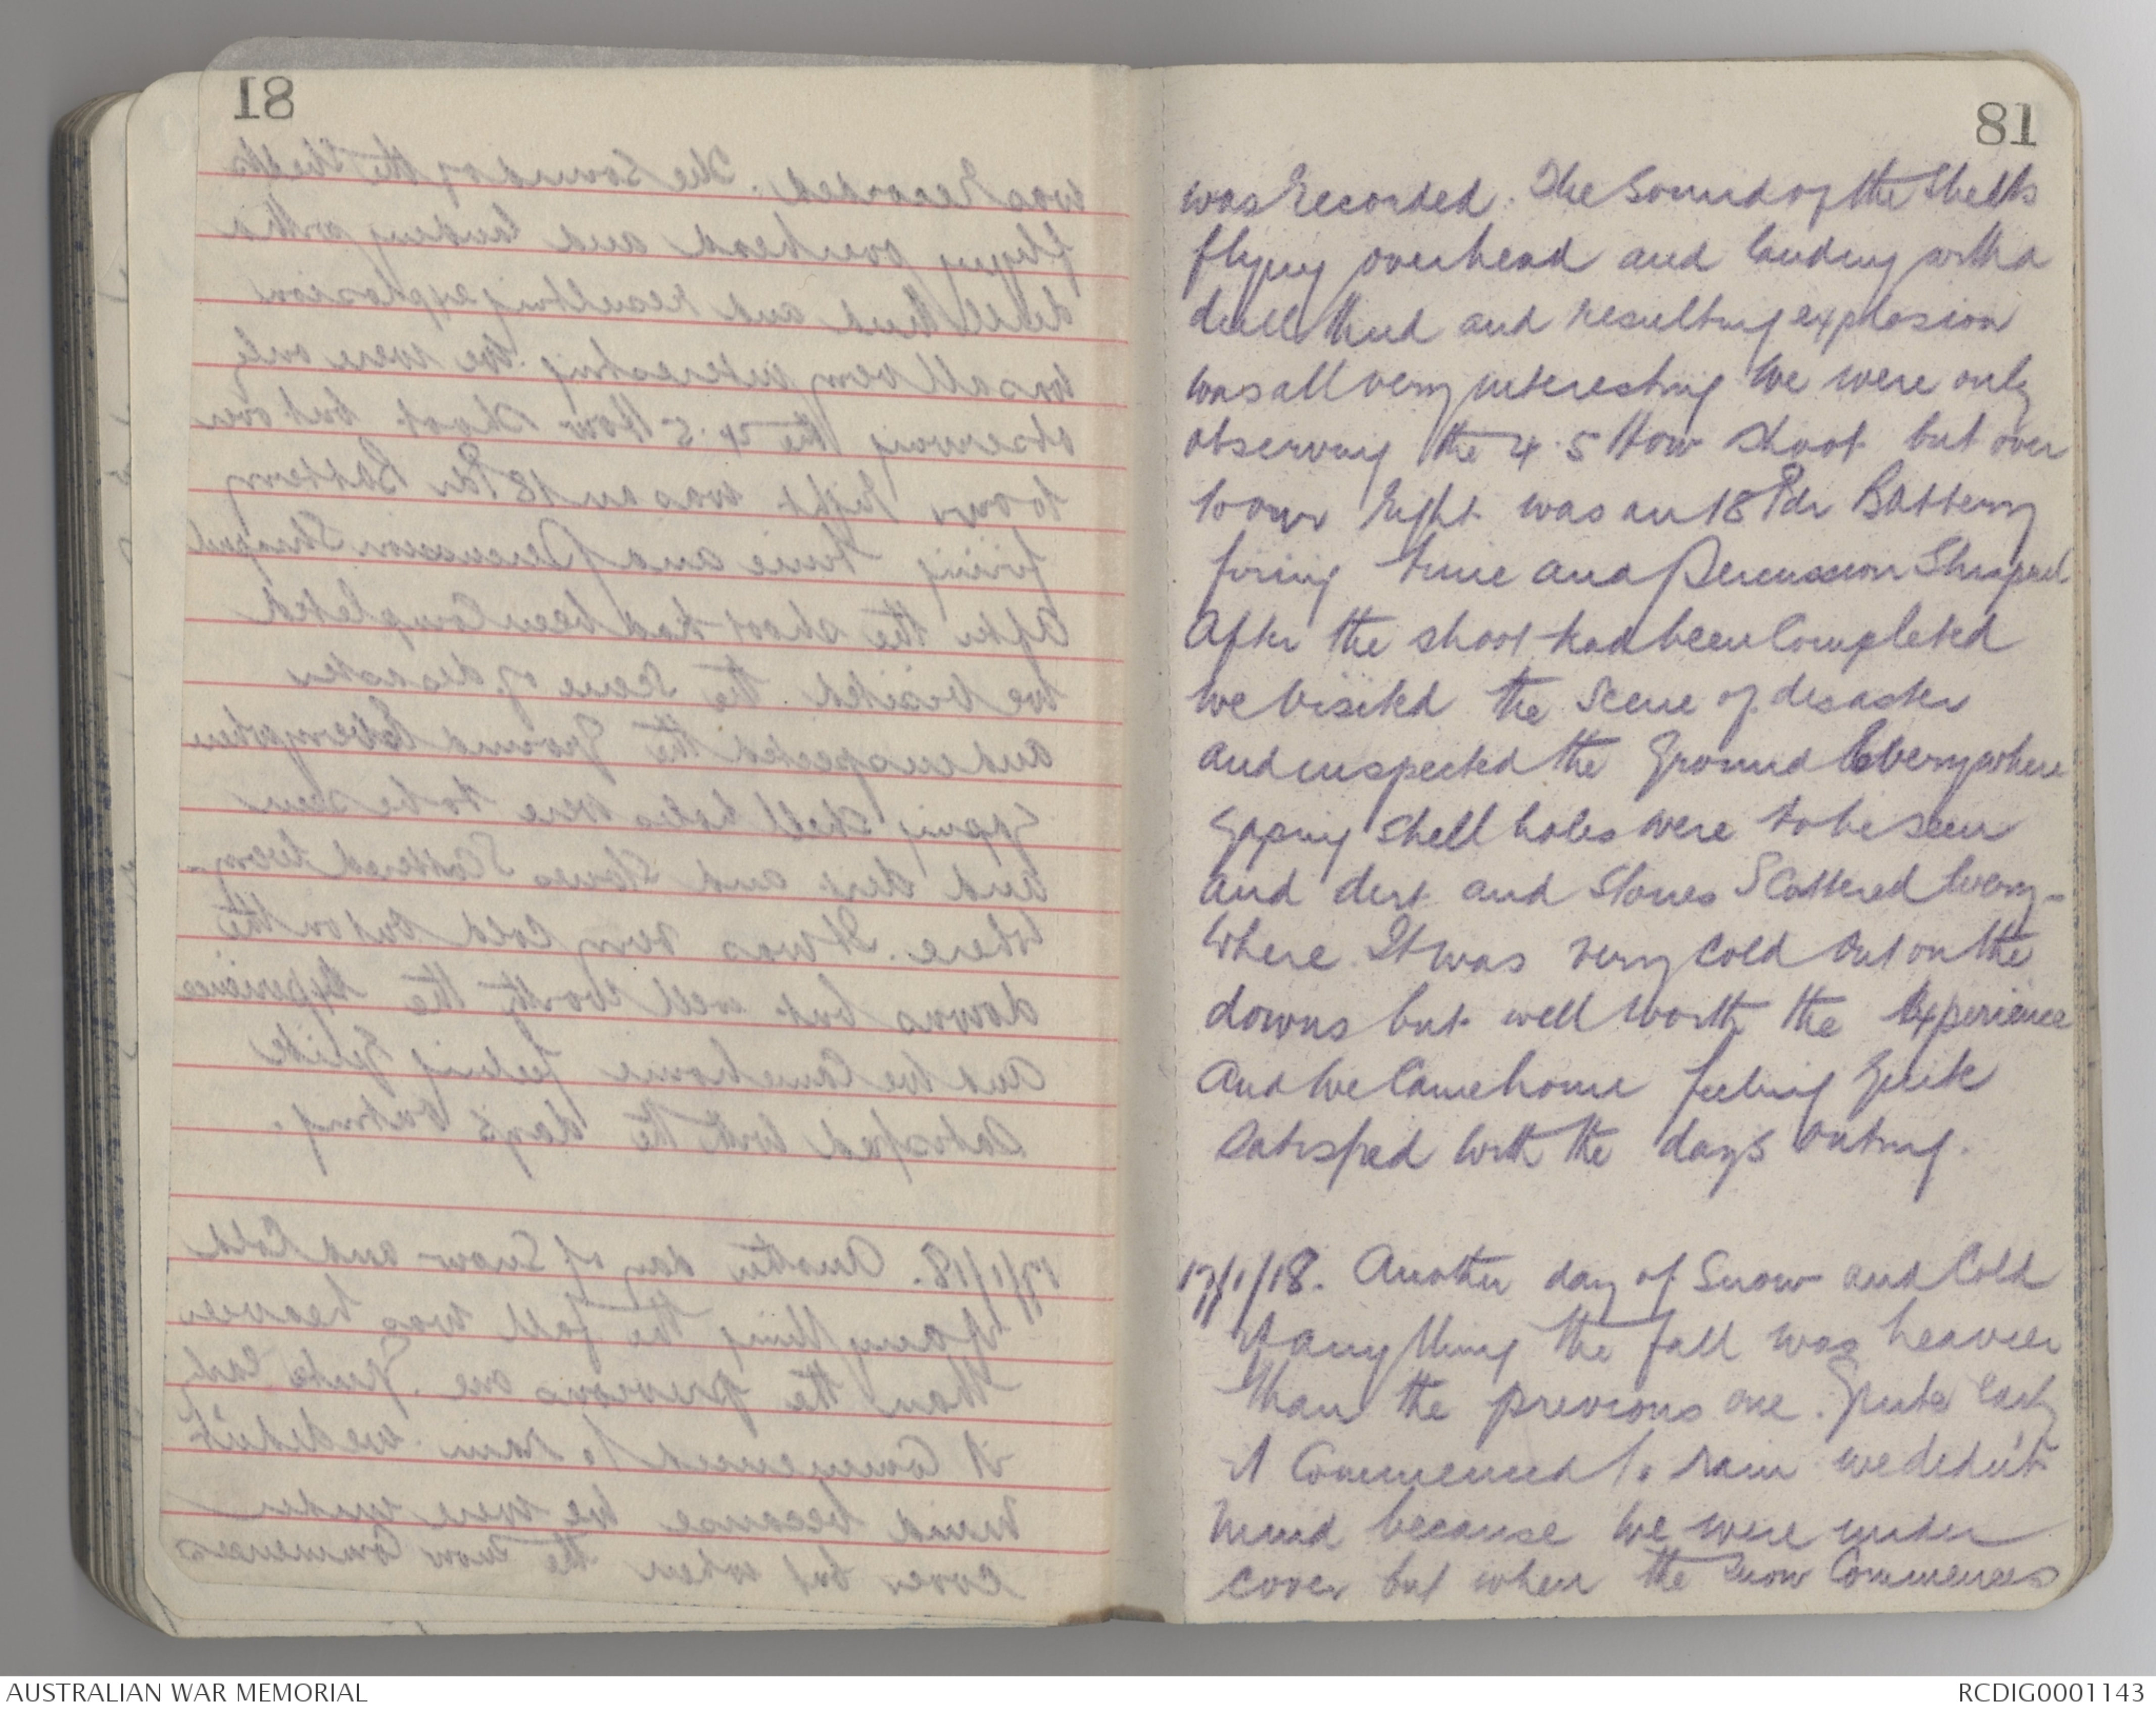 81
was recorded. The Sound of the Shells
flying overhead and landing with a
dull thud and resulting explosion
was all very interesting We were only
observing the 4.5 How shoot but over
to our right was an 18 Pdr Battery
firing time and Percussion Shrapnel
After the shoot had been Completed
we visited the Scene of disaster
and inspected the ground Everywhere
gaping shell holes were to be seen
and dirt and Stones Scattered every-
where. It was very cold out on the
downs but well worth the experience
and we came home feeling quite
satisfied with the days outing.
17/1/18. Another day of Snow and Cold
If anything the fall was heavier
than the previous one. Quite early
it Commenced to rain we didn't
mind because we were under
cover but when the snow Commences
AUSTRALIAN WAR MEMORIAL
RCDIG0001143